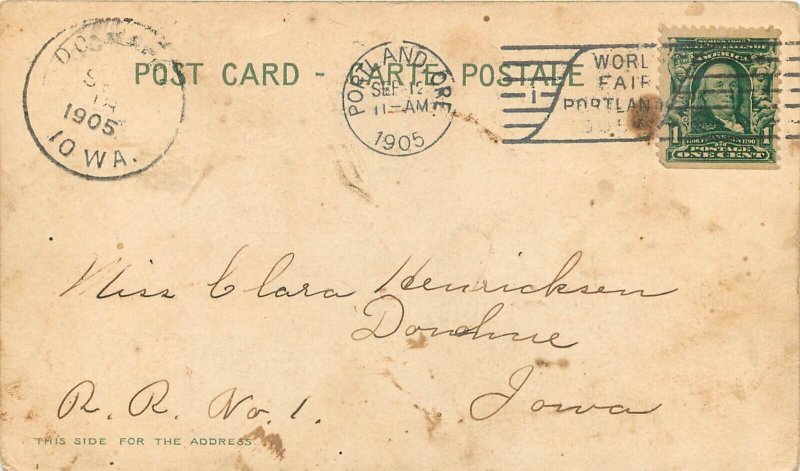 POST CARD - CARTE POSTALE
PORTLAND, ORE.
SEP 12
11-AM
1905
1905
IOWA.
WORL
FAIR
PORTLAN
1 1
POSTAGE
ONE CENT
Miss Clara Henricksen
Donahue
R. R. No. 1. Iowa
THIS SIDE FOR THE ADDRESS